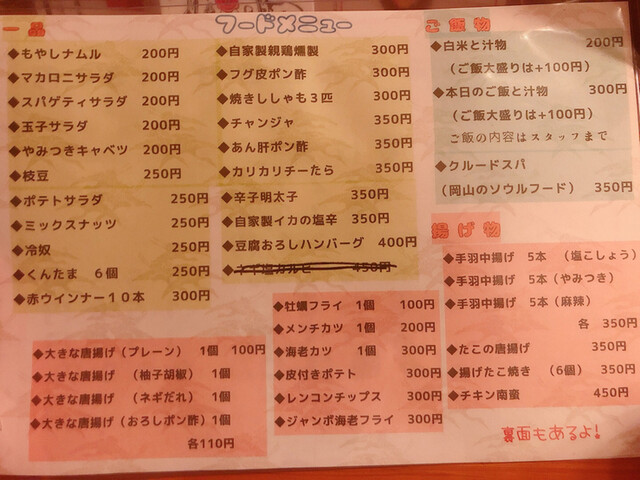 フードメニュー
一品
◆もやしナムル 200円
◆マカロニサラダ 200円
◆スパゲティサラダ 200円
◆玉子サラダ 200円
◆やみつきキャベツ 200円
◆枝豆 250円
◆ポテトサラダ 250円
◆ミックスナッツ 250円
◆冷奴 250円
◆くんたま 6個 250円
◆赤ウインナー10本 300円
◆自家製親鶏燻製 300円
◆フグ皮ポン酢 300円
◆焼きししゃも3匹 300円
◆チャンジャ 350円
◆あん肝ポン酢 350円
◆カリカリチーたら 350円
◆辛子明太子 350円
◆自家製イカの塩辛 350円
◆豆腐おろしハンバーグ 400円
◆ネギ塩カルビー 450円
ご飯物
◆白米と汁物 200円
(ご飯大盛りは+100円)
◆本日のご飯と汁物 300円
(ご飯大盛りは+100円)
ご飯の内容はスタッフまで
◆クルードスパ
(岡山のソウルフード) 350円
揚げ物
◆手羽中揚げ 5本 (塩こしょう)
◆手羽中揚げ 5本(やみつき)
◆手羽中揚げ 5本(麻辣)
各 350円
◆たこの唐揚げ 350円
◆揚げたこ焼き (6個) 350円
◆チキン南蛮 450円
◆大きな唐揚げ(プレーン) 1個 100円
◆大きな唐揚げ (柚子胡椒) 1個
◆大きな唐揚げ (ネギだれ) 1個
◆大きな唐揚げ(おろしポン酢)1個
各110円
◆牡蠣フライ 1個 100円
◆メンチカツ 1個 200円
◆海老カツ 1個 300円
◆皮付きポテト 300円
◆レンコンチップス 300円
◆ジャンボ海老フライ 300円
裏面もあるよ!